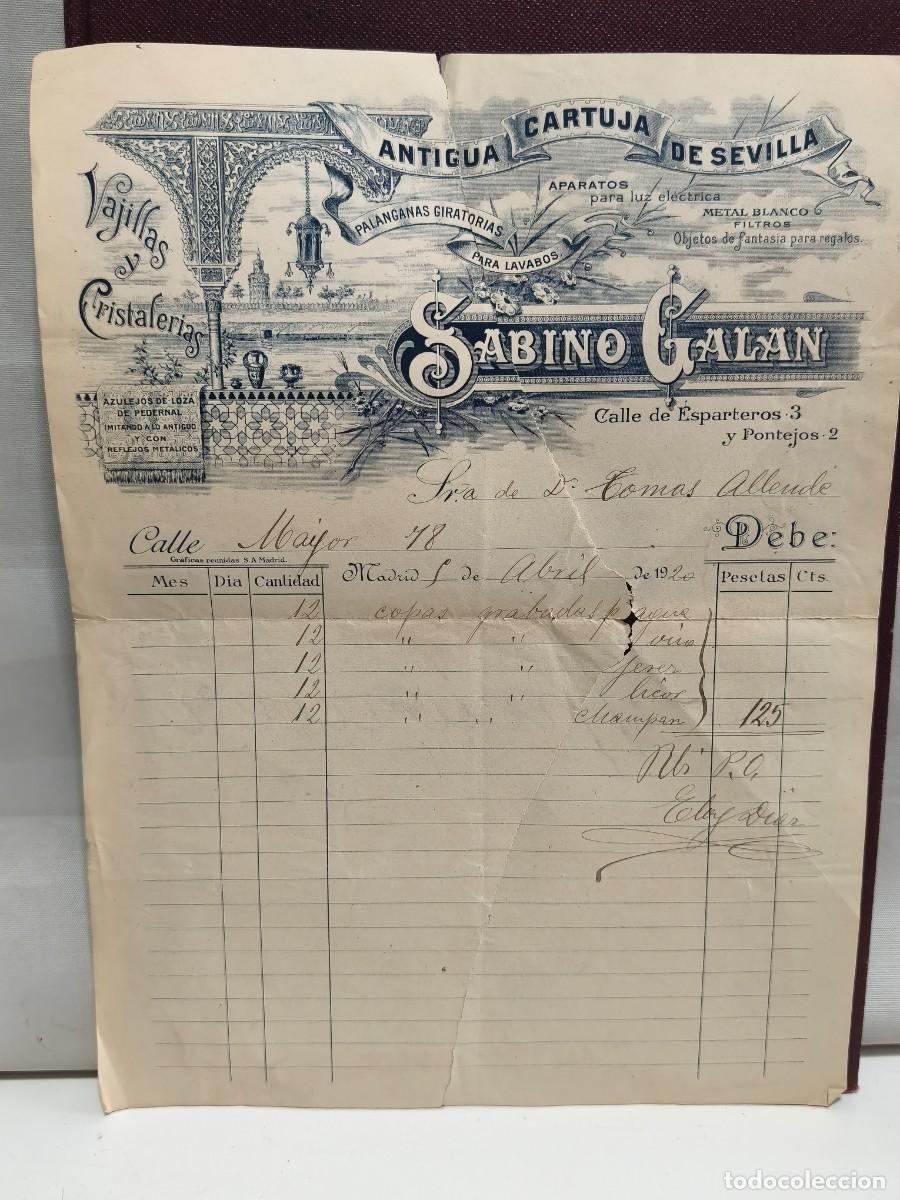 ANTIGUA CARTUJA DE SEVILLA
Vajillas y Cristalerias
APARATOS
para luz eléctrica
PALANGANAS GIRATORIAS
PARA LAVABOS.
METAL BLANCO
FILTROS
Objetos de fantasia para regalos.
SABINO GALAN
AZULEJOS DE LOZA
DE PEDERNAL
IMITANDO A LO ANTIGUO
Y CON
REFLEJOS METÁLICOS
Calle de Esparteros·3
y Pontejos·2
Sra de Dn Tomas Allende
Calle Mayor 78
Debe:
Gráficas reunidas S.A Madrid.
Mes Dia Cantidad Madrid 5 de Abril de 1920 Pesetas Cts.
12 copas grabadas p agua
12 " " vino
12 " " Jerez
12 " " licor
12 " " champan 125
Rbi P.O.
Eloy Diaz
todocoleccion